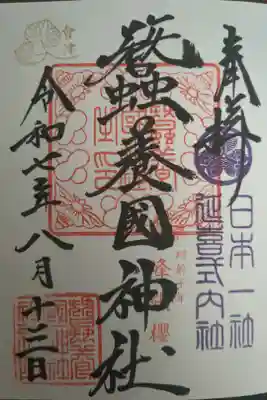 奉拝
日本一社
延喜式内社
蠶養國神社
峰張櫻
會津
令和七年八月十三日